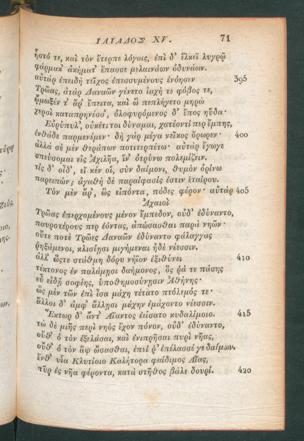 ΙΛΙΑΔΟΣ XV. 71
ἧστό τε, καὶ τὸν ἔτερπε λόγοις, ἐπὶ δ' ἕλκεϊ λυγρῷ
φάρμακ' ἀκήματ' ἔπασσε μελαινάων ὀδυνάων.
αὐτὰρ ἐπειδὴ τεῖχος ἐπεσσυμένους ἐνόησεν 395
Τρῶας, ἀτὰρ Δαναῶν γένετο ἰαχή τε φόβος τε,
ᾤμωξέν τ' ἄρ' ἔπειτα, καὶ ὣ πεπλήγετο μηρὼ
χερσὶ καταπρηνέσσ', ὀλοφυρόμενος δ' ἔπος ηὔδα·
Εὐρύπυλ', οὐκέτι τοι δύναμαι, χατέοντί περ ἔμπης,
ἐνθάδε παρμενέμεν· δὴ γὰρ μέγα νεῖκος ὄρωρεν· 400
ἀλλὰ σὲ μὲν θεράπων ποτιτερπέτω· αὐτὰρ ἔγωγε
σπεύσομαι εἰς Ἀχιλῆα, ἵν' ὀτρύνω πολεμίζειν.
τίς δ' οἶδ', εἴ κέν οἱ, σὺν δαίμονι, θυμὸν ὀρίνω
παρειπών; ἀγαθὴ δὲ παραίφασίς ἐστιν ἑταίρου.
Τὸν μὲν ἄρ', ὣς εἰπόντα, πόδες φέρον· αὐτὰρ 405
Ἀχαιοὶ
Τρῶας ἐπερχομένους μένον ἔμπεδον, οὐδ' ἐδύναντο,
παυροτέρους περ ἐόντας, ἀπώσασθαι παρὰ νηῶν·
οὔτε ποτὲ Τρῶες Δαναῶν ἐδύναντο φάλαγγας
ῥηξάμενοι, κλισίῃσι μιγήμεναι ἠδὲ νέεσσιν.
ἀλλ' ὥς τε στάθμη δόρυ νήϊον ἐξιθύνει 410
τέκτονος ἐν παλάμῃσι δαήμονος, ὅς ῥά τε πάσης
εὖ εἰδῇ σοφίης, ὑποθημοσύνῃσιν Ἀθήνης·
ὣς μὲν τῶν ἐπὶ ἶσα μάχη τέτατο πτόλεμός τε·
ἄλλοι δ' ἀμφ' ἄλλῃσι μάχην ἐμάχοντο νέεσσιν.
Ἕκτωρ δ' ἄντ' Αἴαντος ἐείσατο κυδαλίμοιο. 415
τὼ δὲ μιῆς περὶ νηὸς ἔχον πόνον, οὐδ' ἐδύναντο,
οὔθ' ὁ τὸν ἐξελάσαι, καὶ ἐνιπρῆσαι πυρὶ νῆας,
οὔθ' ὁ τὸν ἂψ ὤσασθαι, ἐπεί ῥ' ἐπέλασσέ γε δαίμων.
ἔνθ' υἷα Κλυτίοιο Καλήτορα φαίδιμος Αἴας,
πῦρ ἐς νῆα φέροντα, κατὰ στῆθος βάλε δουρί. 420